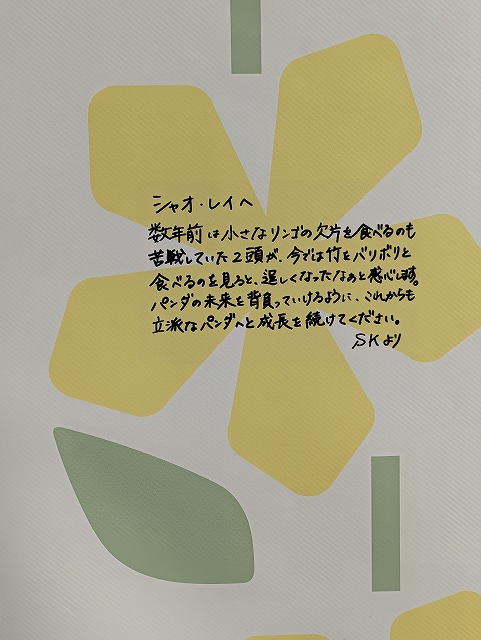 シャオ・レイへ
数年前は小さなリンゴの欠片を食べるのも
苦戦していた2頭が、今では竹をバリボリと
食べるのを見ると、逞しくなったなぁと感心します。
パンダの未来を背負っていけるように、これからも
立派なパンダへと成長を続けてください。
SKより